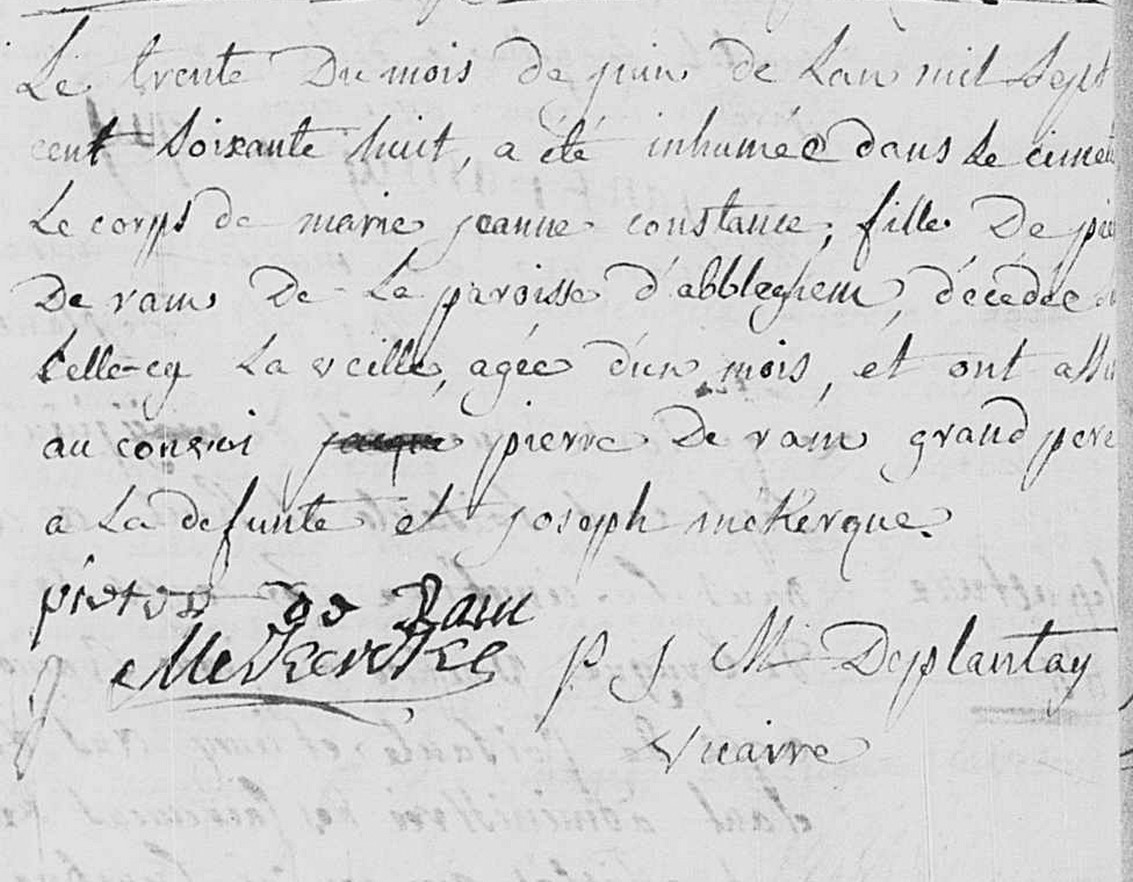 Le trente Du mois de juin de Lan mil Sept
cent Soixante huit, a été inhumée dans Le cimet
Le corps de marie jeanne constance, fille De pie
De ram De La paroisse d'abbleghem, décédée
Celle-cy La veille, agée d'un mois, et ont assi
au convoi pierre De ram grand pere
a La defunte et joseph mekerque.
pieter de Ram
j Mekerke p j M Deplantay
vicaire